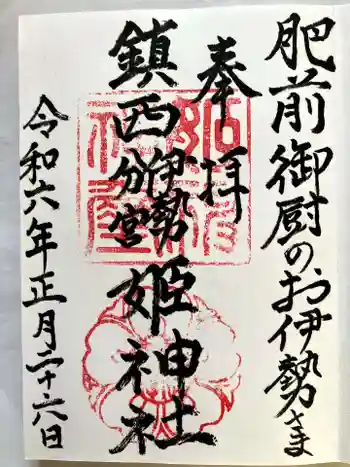 肥前御厨のお伊勢さま
奉拝
鎮西伊勢分宮姫神社
令和六年正月二十六日